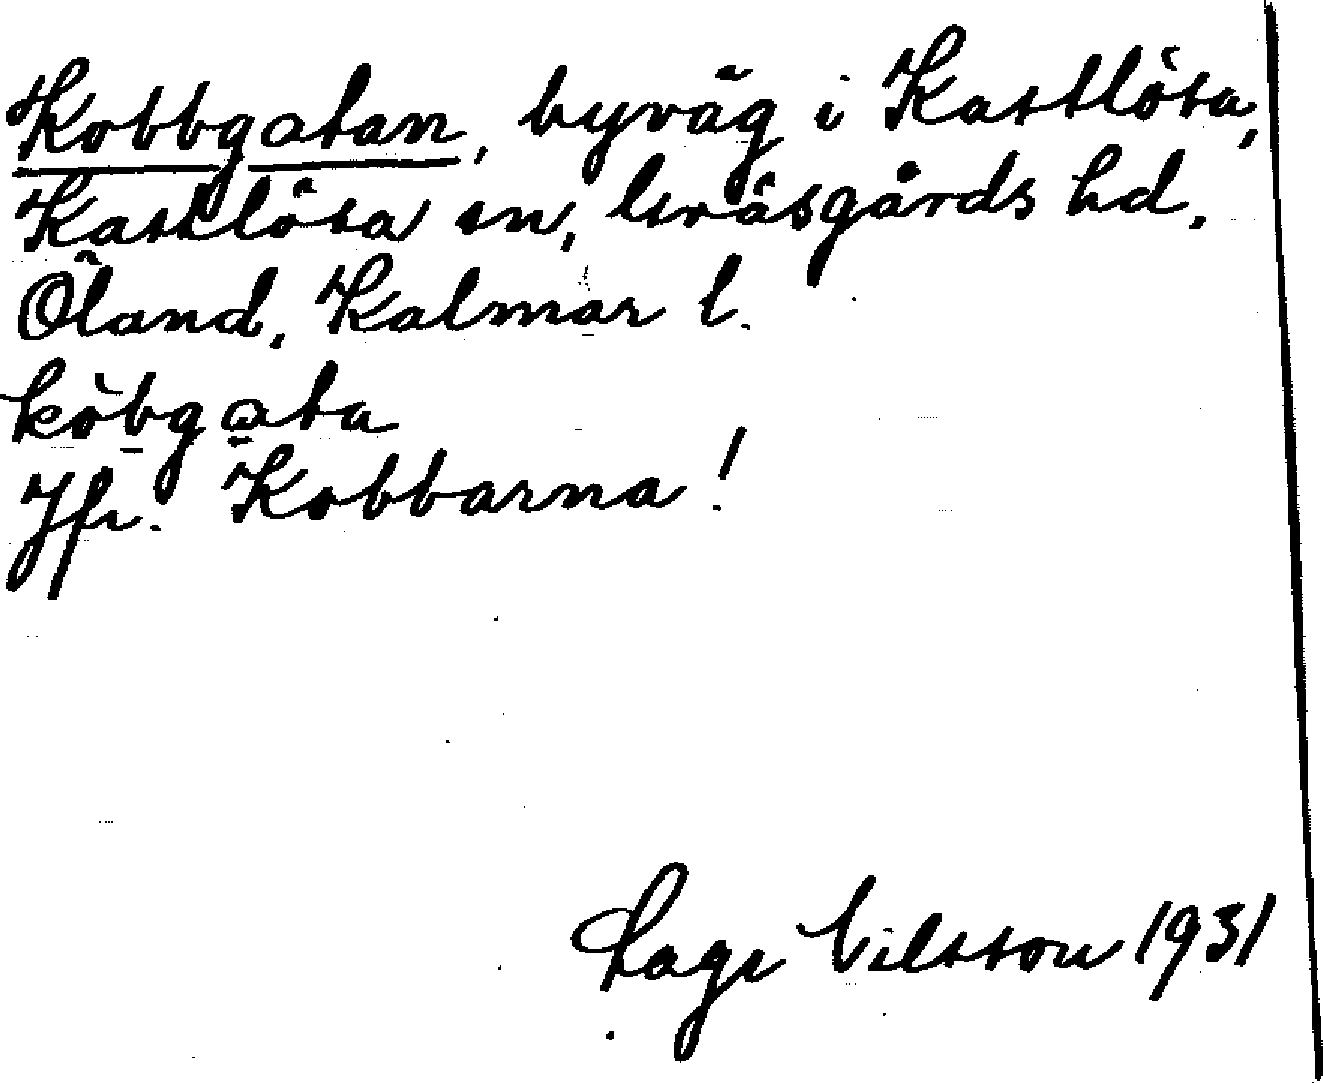 Kobbgatan, byväg i Kastlösa,
Kastlösa sn, Gräsgårds hd.
Öland, Kalmar l.
kòbgata
Jfr. Kobbarna!
Lage Nilsson 1931